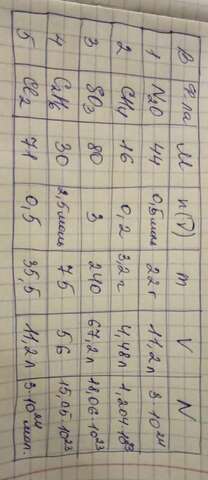 В Ф-ла M n(ν) m V N
1 N₂O 44 0,5моль 22г 11,2л 3·10²⁴
2 CH4 16 0,2 3,2г 4,48л 1,204·10²³
3 SO₃ 80 3 240 67,2л 18,06·10²³
4 C₂H₆ 30 2,5моль 75 56 15,05·10²³
5 Cl₂ 71 0,5 35,5 11,2л 3·10²⁴ мол.